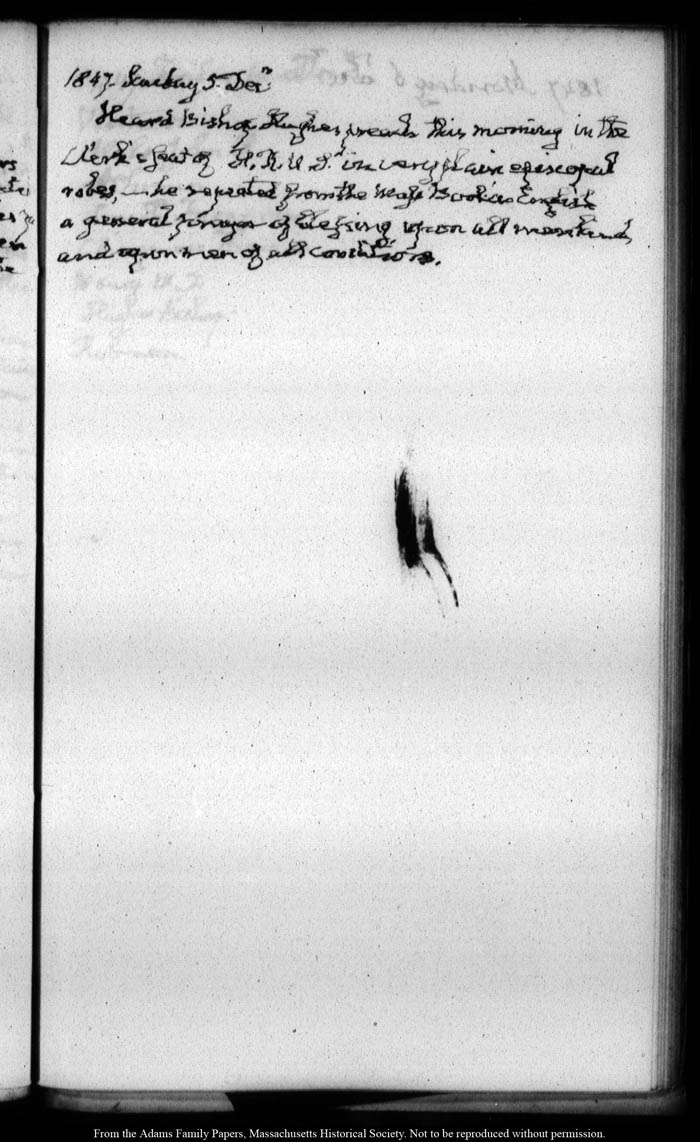 1847. Sunday 5. Decr.
Heard Bishop Hughes preach this morning in the
Clerk's seat of H. R. U. S. in very plain episcopal
robes, he repeated from the Mass Book in English
a general prayer of blessing upon all mankind,
and upon men of all conditions.
From the Adams Family Papers, Massachusetts Historical Society. Not to be reproduced without permission.